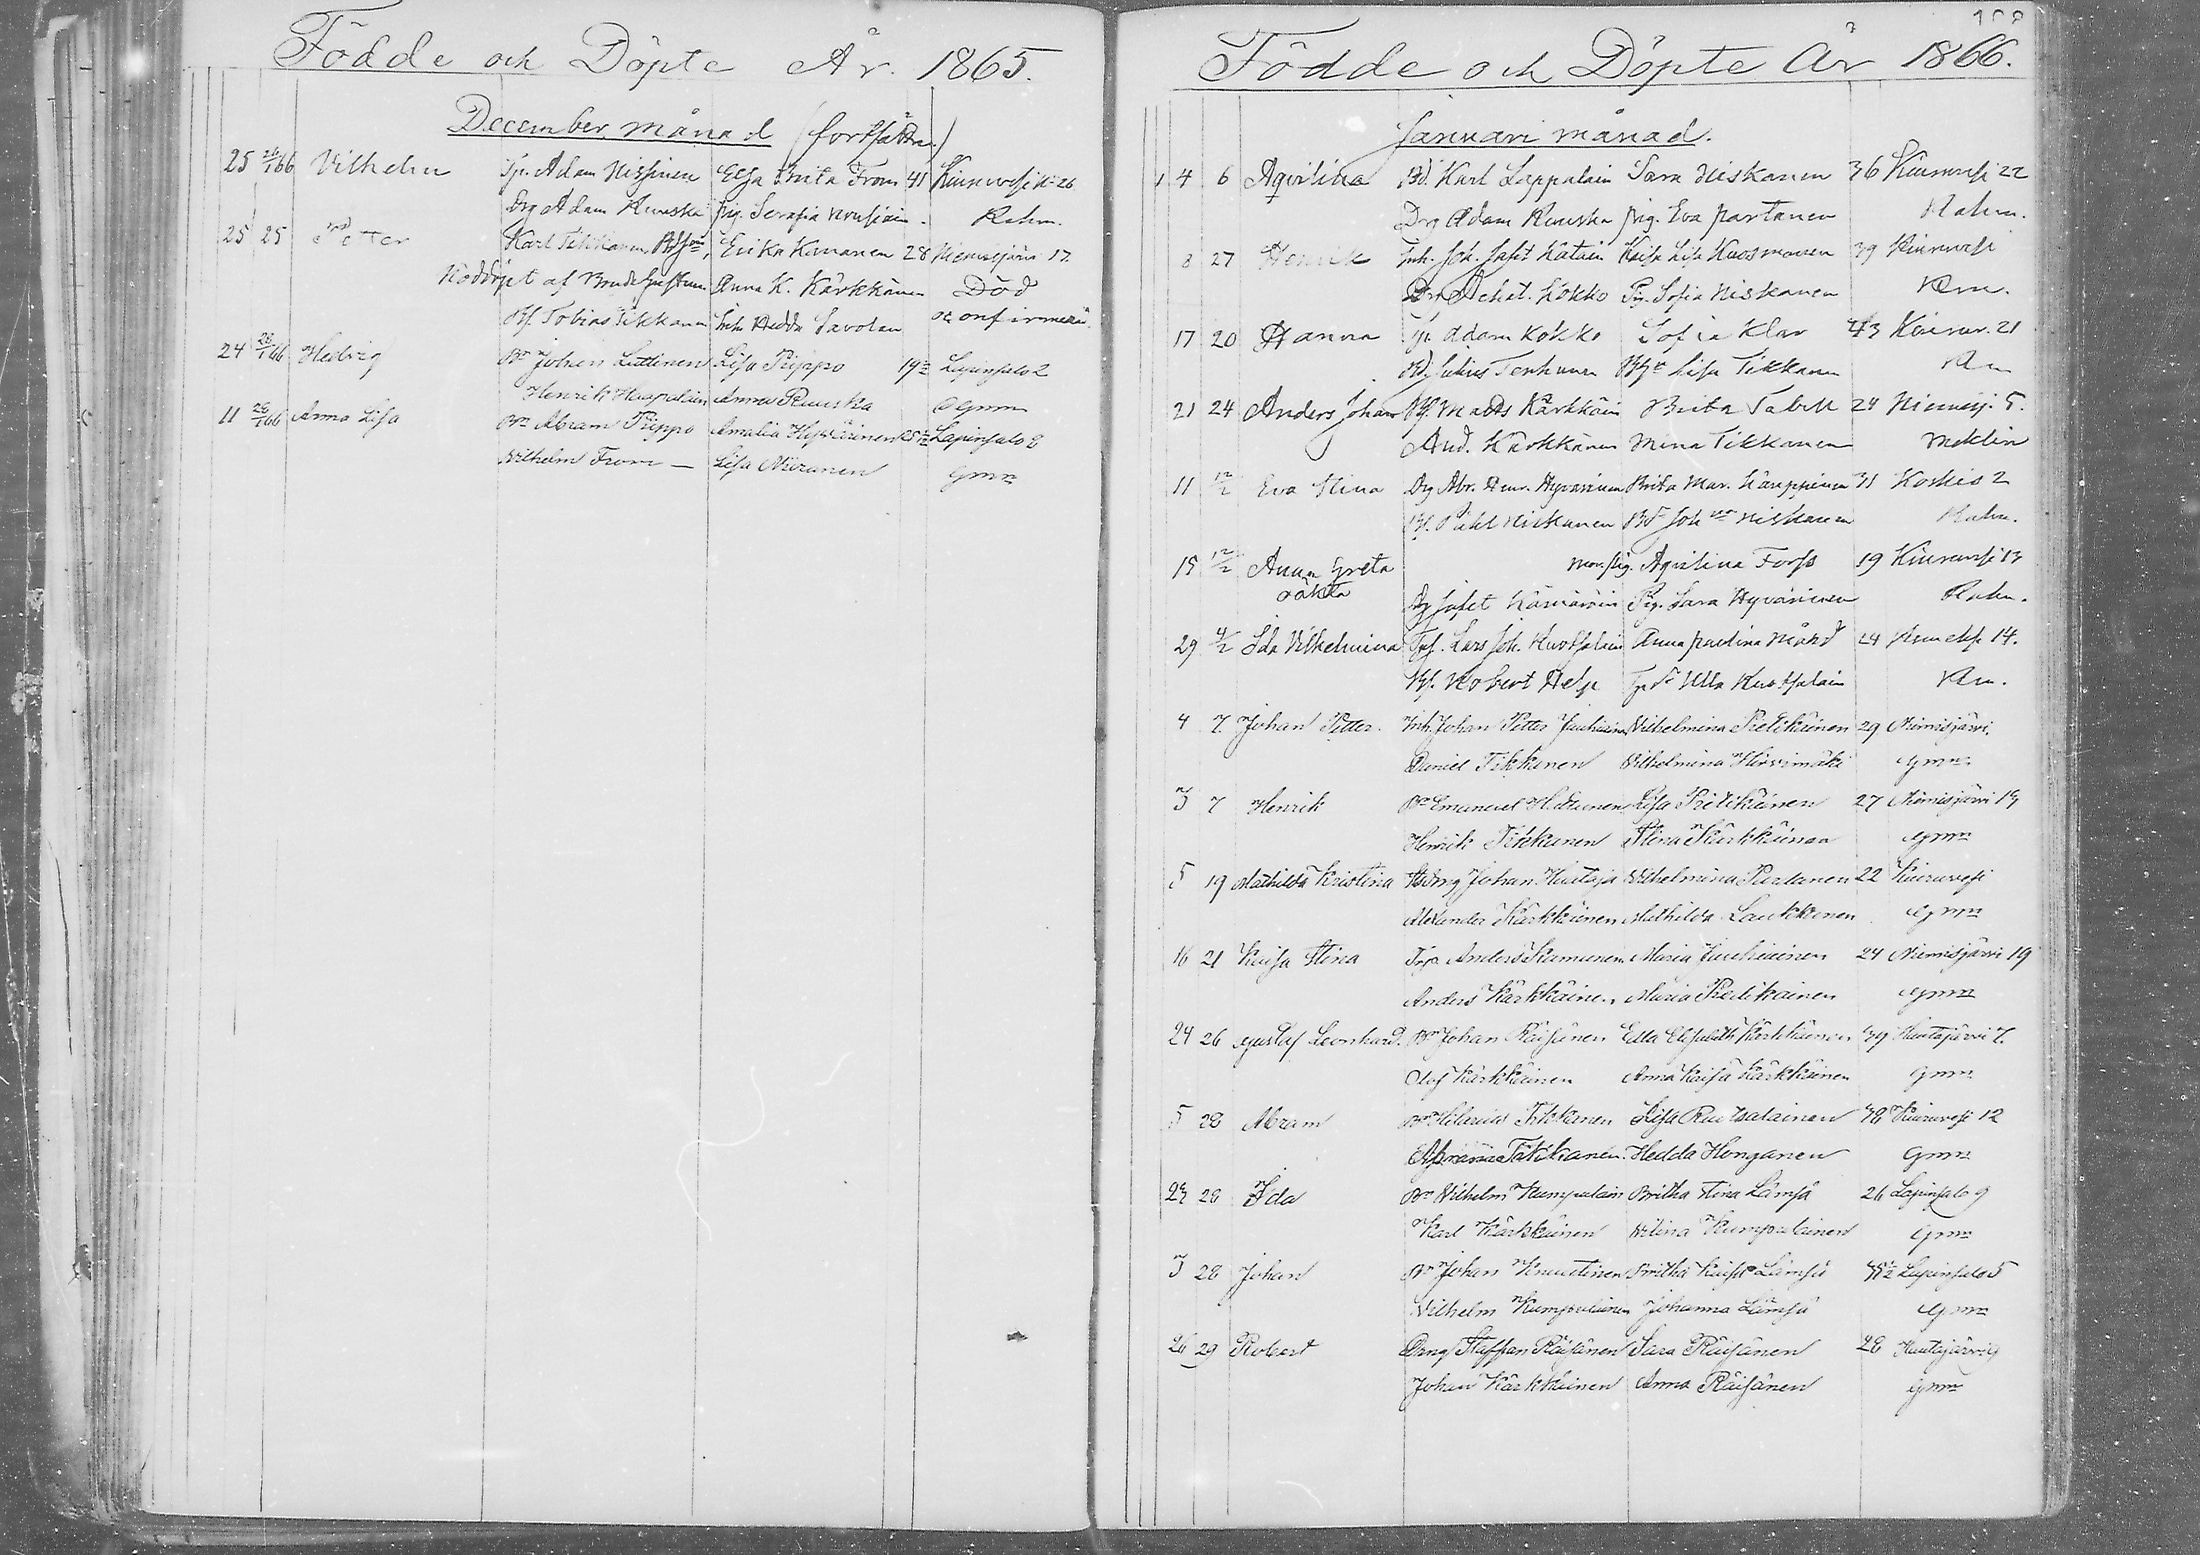 Födde och Döpte År. 1865.
December månad (fortsättn.)
25 26/1 66 Vilhelm Tp. Adam Nissinen Elsa Brita From 41 Kiuruvesi 26
Drg Adam Ruuska pig. Serafia Rahm.
25 25 Petter Karl Tikkanen Erika Kananen 28 Niemisjärvi 17.
Nöddöpt af Anna K. Kärkkänen Död
Bf. Tobias Tikkanen Inh. Hedda Savolan
24 28/1 66 Hedvig Bn Johan Luttinen Lisa Piippo 19 Lapinsalo 2
Henrik Anna Ruuska Gmn
11 28/1 66 Anna Lisa Bn Abram Piippo Amalia Hyvärinen 25 Lapinsalo 8
Vilhelm From — Lisa Niiranen Gmn
Födde och Döpte År 1866.
Januari månad.
1 4 6 Aqvilina Bd. Karl Lappalain Sara Niskanen 36 Kiuruvesi 22
Drg Adam Ruuska pig. Eva Partanen Rahm.
8 27 Henrik Inh. Joh. Jafet Katain Kaisa Lisa Kuosmanen 39 Kiuruvesi
Drg Achat. Kokko Pig. Sofia Niskanen Rm.
17 20 Hanna Tp. Adam Kokko Sofia Klar 43 Kiuruv. 21
Bd. Julius Tenhunen Lisa Tikkanen Rm
21 24 Anders Johan Bf. Matts Kärkkäin Brita Tabell 24 Niemisj. 5.
And. Kärkkänen Mina Tikkanen Meklin
11 12/2 Eva Stina Drg Abr. Henr. Hyvärinen Brita Mar. Kauppinen 31 Koskis 2
Bf. Påhl Niskanen Joh Niskanen Rahm.
15 12/2 Anna Greta mor. pig. Aqvilina Forss 19 Kiuruvesi 13
oäkta Drg Jafet Kämäräin Pig. Sara Hyvärinen Rahm.
29 4/2 Ida Vilhelmina Lars Joh. Anna Paulina Mård 24 14.
Bf. Robert Help Ulla Rm.
4 7 Johan Petter. Inh. Johan Petter Jauhiainen Vilhelmina Pietikäinen 29 Niemisjärvi.
Daniel Tikkanen Vilhelmina Hirvimäki Gmn
3 7 Henrik Bn Emanuel Lisa Pietikäinen 27 Niemisjärvi 19
Henrik Tikkanen Stina Kärkkäinen Gmn
5 19 Mathilda Kristina Johan Huttaja Vilhelmina Partanen 22 Kiuruvesi
Alexander Kärkkäinen Mathilda Laukkanen Gmn
16 21 Kaisa Stina Trp. Anders Kamunen Maria Jauhiainen 24 Niemisjärvi 19
Anders Kärkkäinen Maria Pietikainen Gmn
24 26 Gustaf Leonhard. Bn Johan Räisänen Edla Elisabeth Kärkkäinen 39 Hautajärvi 7.
Olof Kärkkäinen Anna Kaisa Kärkkäinen Gmn
5 28 Abram Bn Hilarius Tikkanen Lisa Rautsalainen 38 Kiuruvesi 12
Abram Tikkanen. Hedda Honganen Gmn
22 28 Ida Bn Vilhelm Kumpulain Britha Stina Lämsä 26 Lapinsalo 9
Karl Kärkkäinen Kumpulainen Gmn
3 28 Johan Bn Johan Knuutinen Britha Kaisa Lämsä Lapinsalo 5
Vilhelm Kumpulainen Johanna Lämsä Gmn
26 29 Robert Drng Staffan Räisänen Sara Räisänen 28 Hautajärvi
Johan Kärkkäinen Anna Räisänen Gmn